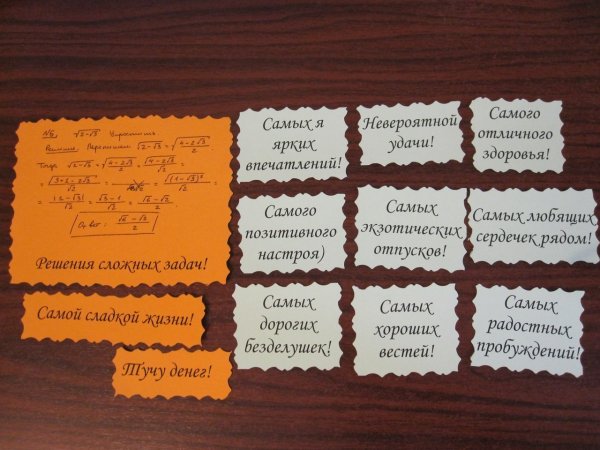 N6. √(2-√3) Упростить
Решение. Перепишем √(2-√3) = √((4-2√3)/2)
Тогда √(2-√3) = √((4-2√3)/2) = √(4-2√3)/√2 =
= √(3+1-2√3)/√2 = = √((1-√3)²)/√2 =
= |1-√3|/√2 = (√3-1)/√2 = (√6-√2)/2
Ответ: (√6-√2)/2
Решения сложных задач!
Самой сладкой жизни!
Тучу денег!
Самых я
ярких
впечатлений!
Невероятной
удачи!
Самого
отличного
здоровья!
Самого
позитивного
настроя)
Самых
экзотических
отпусков!
Самых любящих
сердечек рядом!
Самых
дорогих
безделушек!
Самых
хороших
вестей!
Самых
радостных
пробуждений!